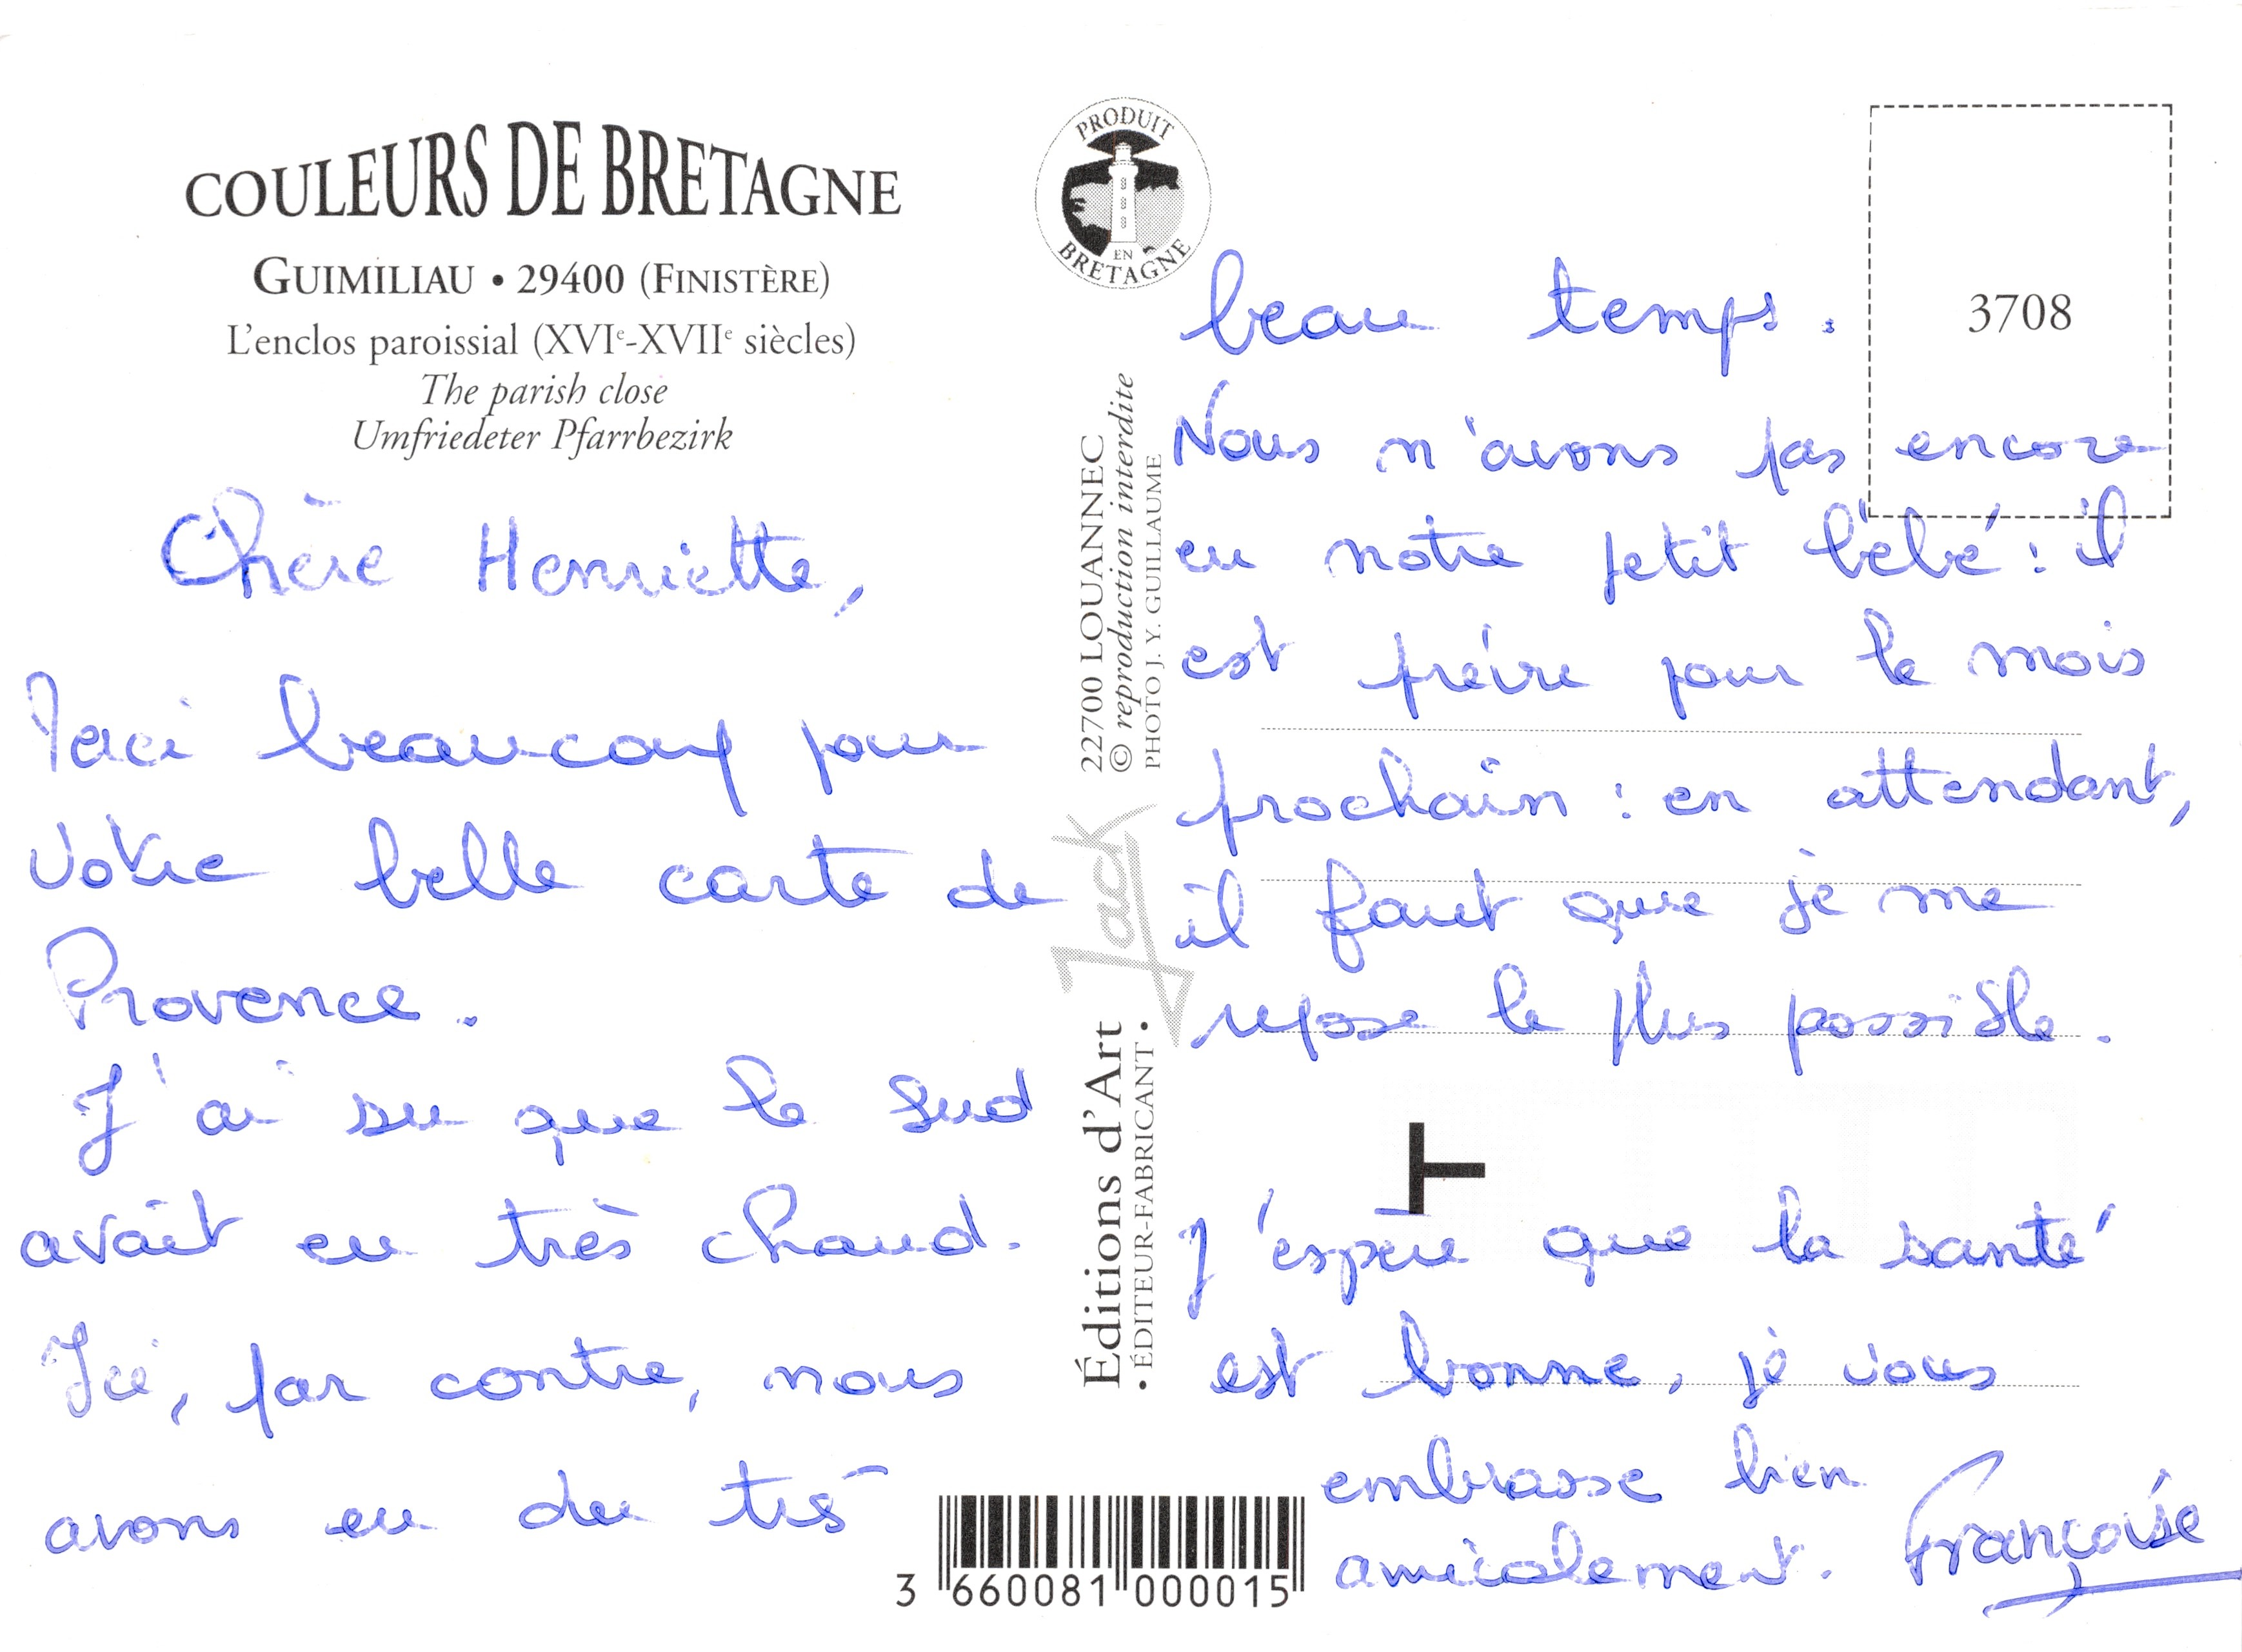 COULEURS DE BRETAGNE
GUIMILIAU • 29400 (FINISTÈRE)
L'enclos paroissial (XVIe-XVIIe siècles)
The parish close
Umfriedeter Pfarrbezirk
Chère Henriette,
Merci beaucoup pour
votre belle carte de
Provence.
J'ai su que le Sud
avait eu très chaud.
Ici, par contre, nous
avons eu du très
PRODUIT
EN
BRETAGNE
22700 LOUANNEC
© reproduction interdite
PHOTO J. Y. GUILLAUME
Jack
Éditions d'Art
• ÉDITEUR-FABRICANT •
3 660081 000015
3708
beau temps.
Nous n'avons pas encore
eu notre petit bébé : il
est prévu pour le mois
prochain : en attendant,
il faut que je me
repose le plus possible.
J'espère que la santé
est bonne, je vous
embrasse bien
amicalement. Françoise